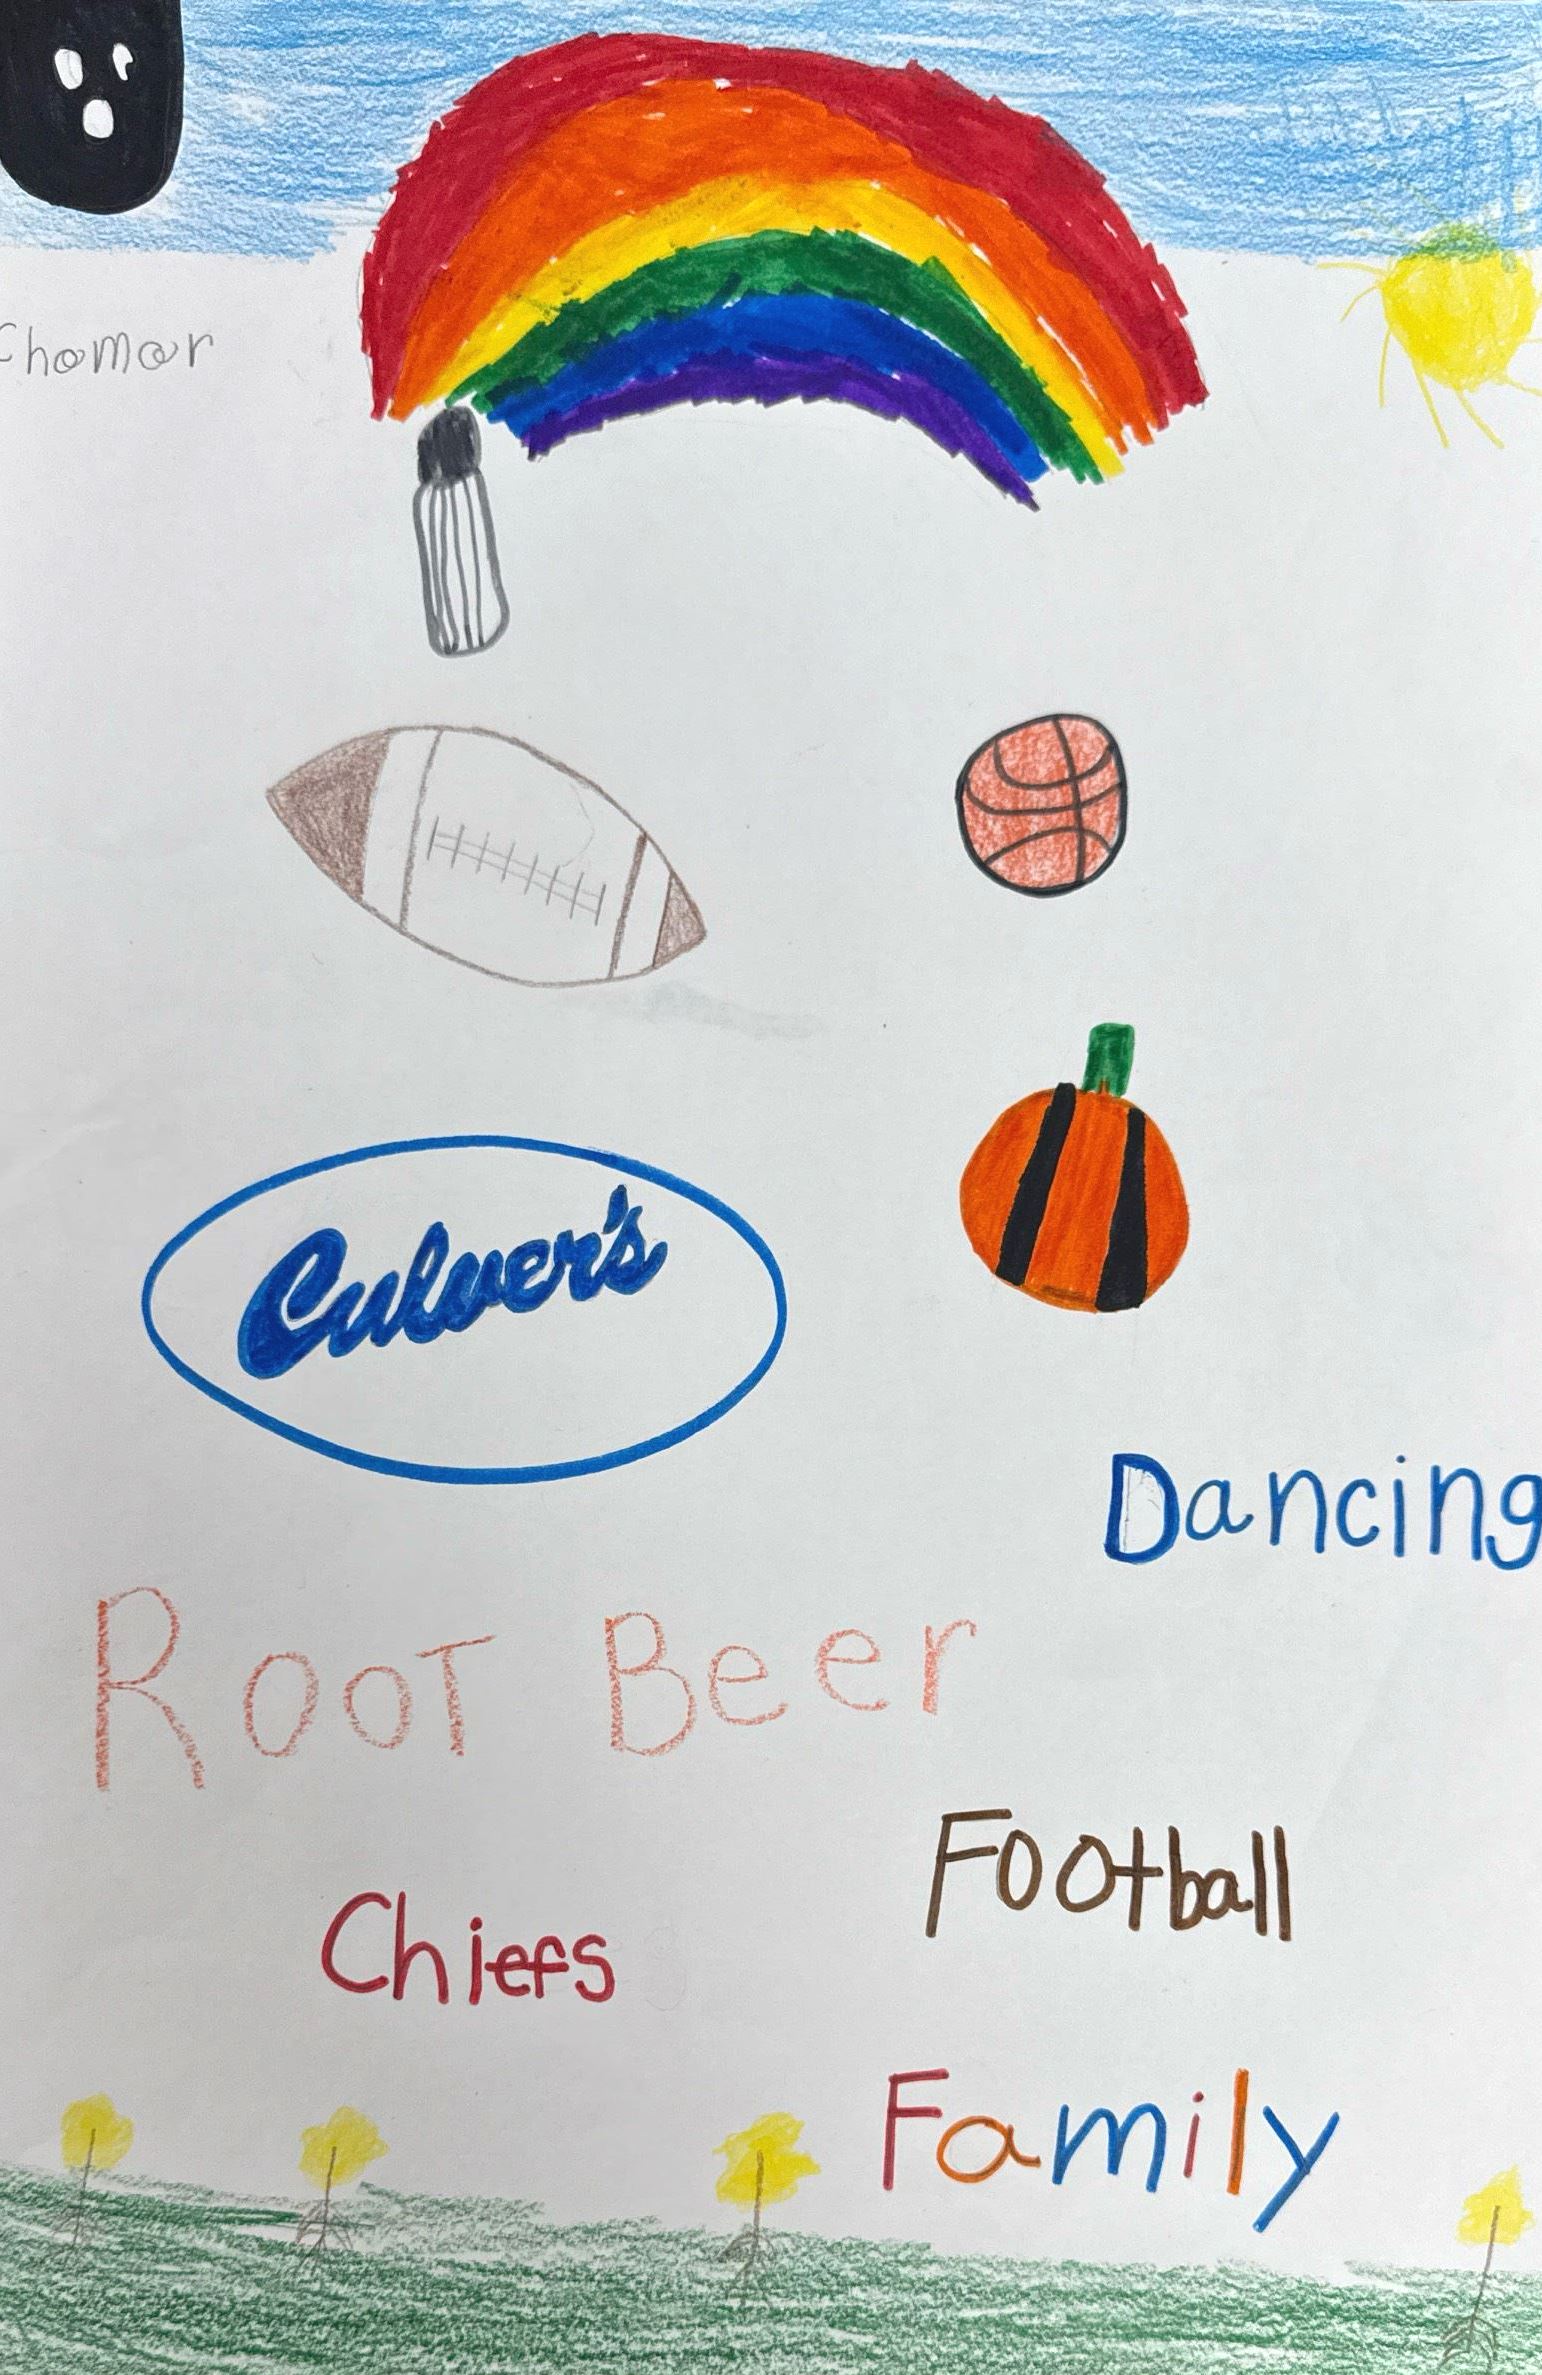 Culver's
Dancing
ROOT Beer
Football
Chiefs
Family